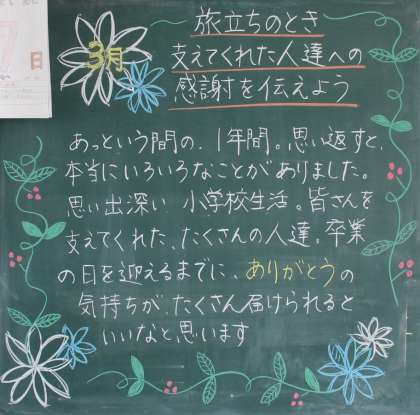 旅立ちのとき
支えてくれた人達への
感謝を伝えよう
3月
7日
あっという間の、1年間。思い返すと、
本当にいろいろなことがありました。
思い出深い 小学校生活。皆さんを
支えてくれた、たくさんの人達。卒業
の日を迎えるまでに、ありがとうの
気持ちが、たくさん届けられると
いいなと思います